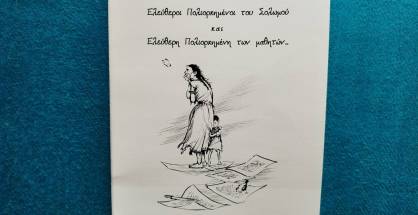 Ελεύθεροι Πολιορκημένοι του Σολωμού
και
Ελεύθερη Πολιορκημένη των μαθητών...